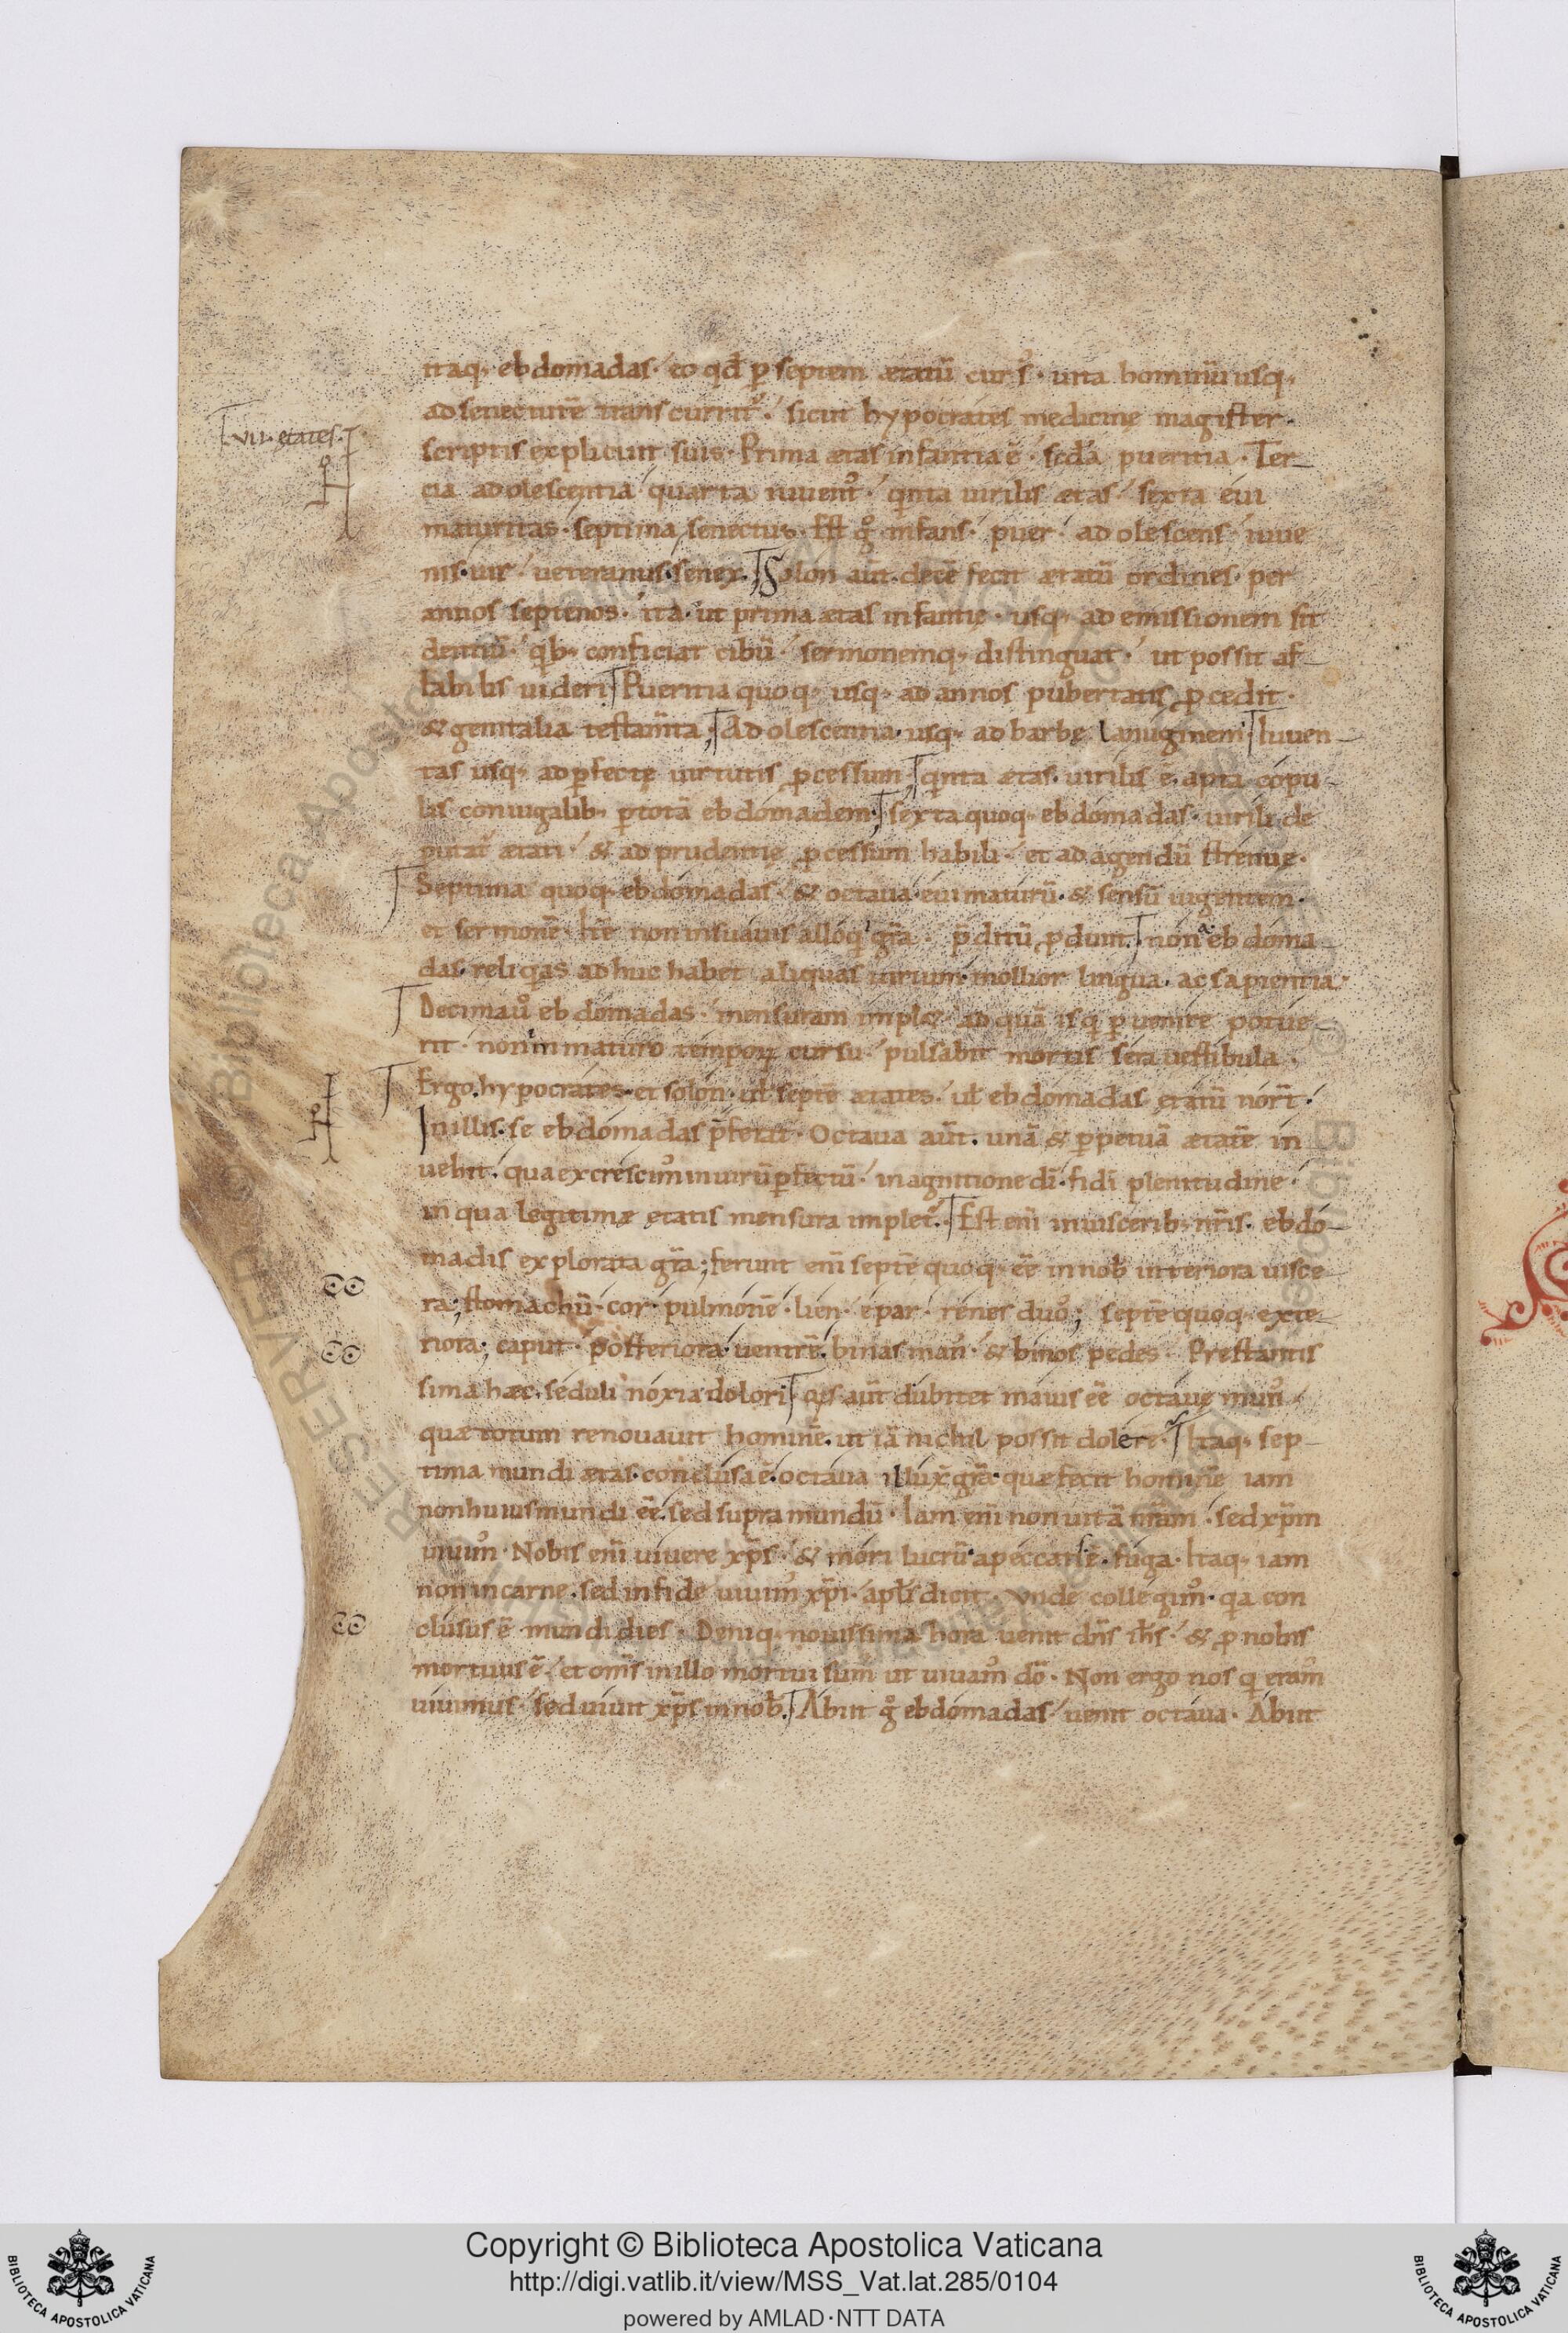 itaq; ebdomadas· eo qd̄ ꝑ septem ætatū curs᷒· uita hominū usq;
ad senectutē transcurrit᷑· sicut hypocrates medicine magister·
vii· ętates·
scriptis explicuit suis· Prima ætas infantia ē· scd̄a pueritia· Ter-
cia adolescentia quarta iuuent᷒· qinta uirilis ætas· sexta eui
maturitas· septima senectus· Est gͦ infans· puer· adolescens· iuue
nis· uir· ueteranus· senex· Solon aūt decē fecit ætatū ordines· per
annos septenos· ita· ut prima ætas infantię· usq; ad emissionem sit
dentiū· qib; conficiat cibū· sermonemq; distinguat· ut possit af-
fabilis uideri Pueritia quoq; usq; ad annos pubertatis ꝓcedit·
& genitalia testam̄ta; Adolescentia· usq; ad barbę lanuginem Iuuen-
tas usq; ad ꝑfectę uirtutis ꝓcessum; qinta ætas· uirilis ē· apta copu-
lis coniugalib; ꝑ totā ebdomadem· sexta quoq; ebdomadas· uirili de
putat᷑ ætati· & ad prudentię ꝓcessum habili· et ad agendū strenue·
Septima quoq; ebdomadas· & octaua eui maturū· & sensū uigentem·
et sermonē· hr̄e non insuauis alloqi gr̄a· p̄ditū ꝓdunt· nona ebdoma
das· reliqas adhuc habet aliquas uirium· mollior lingua· ac sapientia·
Decima uͦ ebdomadas· mensuram impl&· ad quā isq ꝑuenire potue-
rit· non inmaturo tempoꝝ cursu· pulsabit mortis sera uestibula·
Ergo hypocrates· et solon· ut septē ætates· ut ebdomadas ętatū nor̄t·
In illis· se ebdomadas p̄ferat· Octaua aūt· unā & ꝑpetuā ætatē in
uehit· qua excrescim᷒ in uirū ꝑfectū· in agnitione dī· fidī plenitudine·
in qua legitimæ ętatis mensura implet᷑· Est eni̅ in uisceribˍ nr̄is· ebdo-
madis explorata gr̄a; ferunt eni̅ septē quoq; eē in nob̄ interiora uisce-
ra; stomachū· cor· pulmonē· lien· epar· renes duo; septē quoq; exte-
riora; caput· posteriora uentrē· binas man᷒· & binos pedes· Prestantis
sima hæc· seduli noxia dolori qis aūt dubitet maius eē octauę mun᷒·
quæ totum renouauit hominē· ut iā nichil possit dolere· Itaq; sep-
tima mundi ætas· conclusa ē· octaua illux̄ gr̄a· quæ fecit hominē iam
non huius mundi eē· sed supra mundū· Iam eni̅ non uitā nr̄am· sed xp̄m
uiuim᷒· Nobis eni̅ uiuere xp̄s· & mori lucrū· a peccatis ē fuga· Itaq; iam
non in carne· sed in fide uiuim᷒ xp̄i· apl̄s dicit· vnde colleqim᷒· qia con
clusus ē mundi dies· Deniq; nouissima hora uenit dn̄s ih̄s· & ꝓ nobis
mortuus ē· et om̄s in illo mortui sum᷒ ut uiuam᷒ dō· Non ergo nos q eram᷒
uiuimus· sed uiuit xp̄s in nob̄· Abiit gͦ ebdomadas· uenit octaua· Abiit
Copyright © Biblioteca Apostolica Vaticana
http://digi.vatlib.it/view/MSS_Vat.lat.285/0104
powered by AMLAD·NTT DATA
BIBLIOTECA APOSTOLICA VATICANA
BIBLIOTECA APOSTOLICA VATICANA